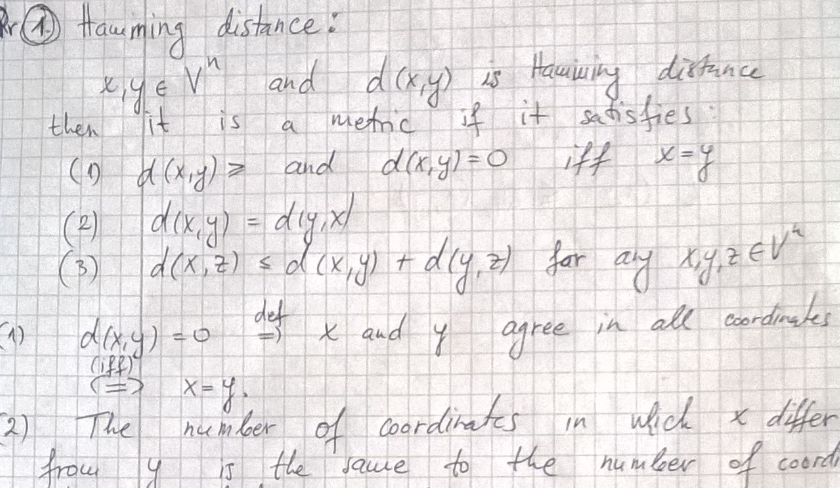 Pr ① Hamming distance:
x,y ∈ Vⁿ and d(x,y) is Hamming distance
then it is a metric if it satisfies:
(1) d(x,y) ≥ and d(x,y)=0 iff x=y
(2) d(x,y) = d(y,x)
(3) d(x,z) ≤ d(x,y) + d(y,z) for any x,y,z ∈ Vⁿ
(1) d(x,y) = 0 def ⇒ x and y agree in all coordinates
(iff) ⟺ x=y.
(2) The number of coordinates in which x differ
from y is the same to the number of coordi